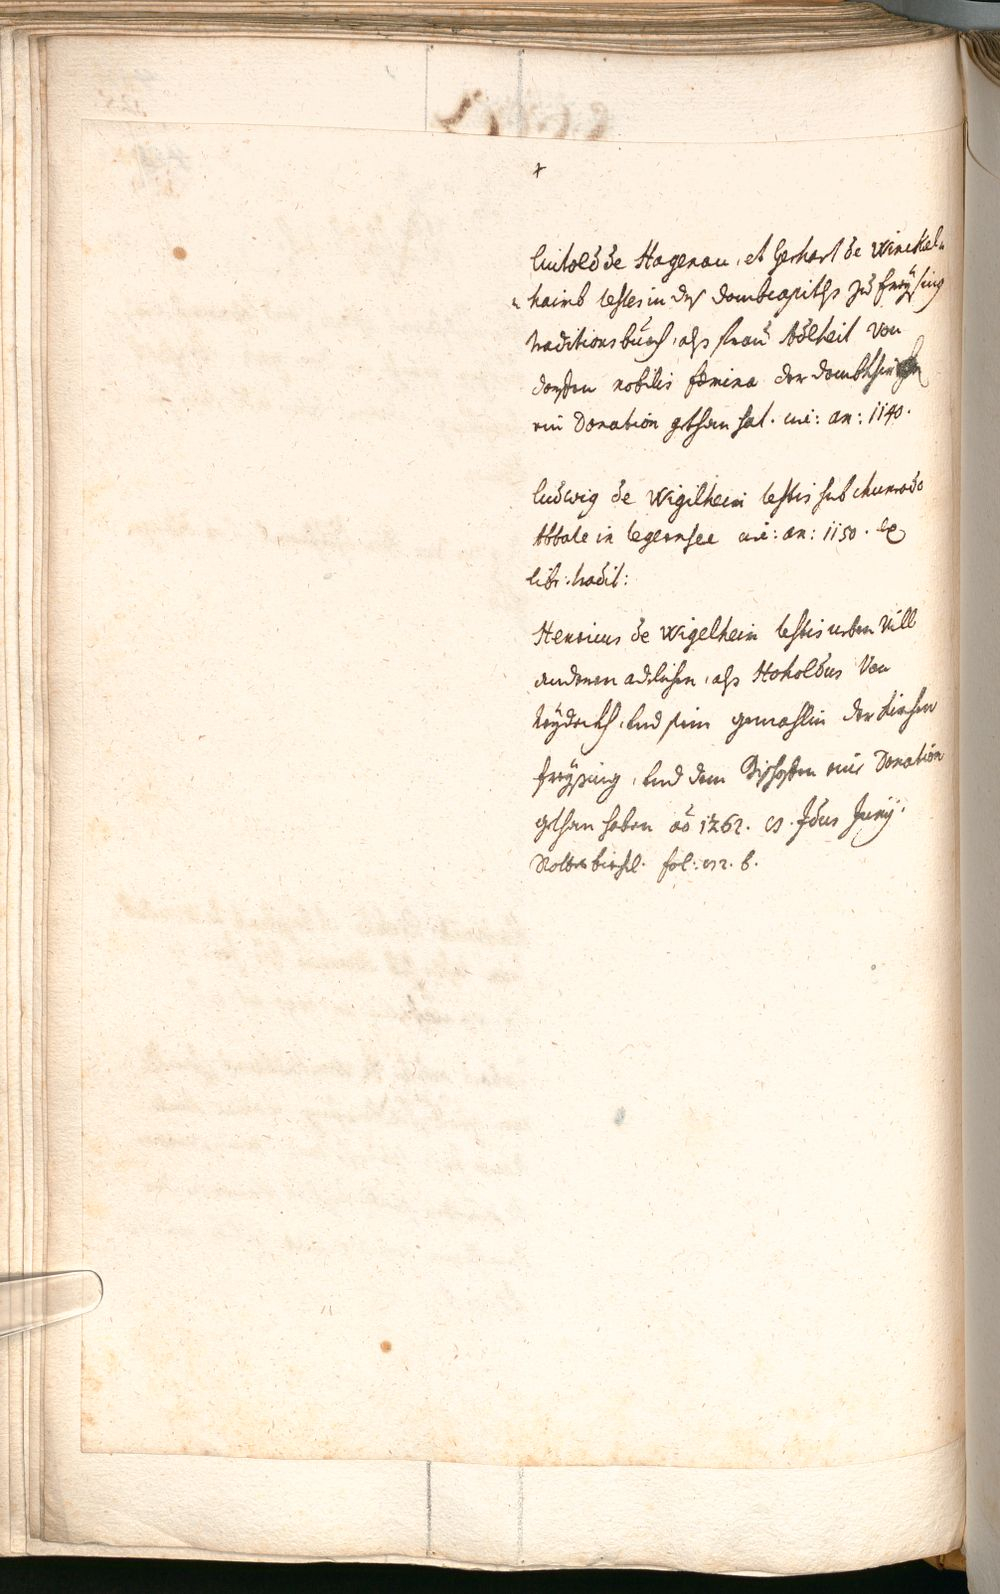 luitold de Hagenau, et Gerhart de Winckel„
„haimb testes in des dombcapitls zu freÿsing
traditionsbuech, als frau Adlheit von
nobilis fœmina der
ein Donation gethan hat. an: 1140.
ludwig de Wigilheim testis sub chunrado
Abbate in tegernsee an: 1150. ex
libr: tradit:
Henricus de Wigelheim testis neben vill
anderen adlichen, als Hoholdus von
und sein gemahlin der kirchen
freÿsing, und dem Bischoffen ein Donation
gethan haben aō 1262. Idus Junÿ.
fol: b.